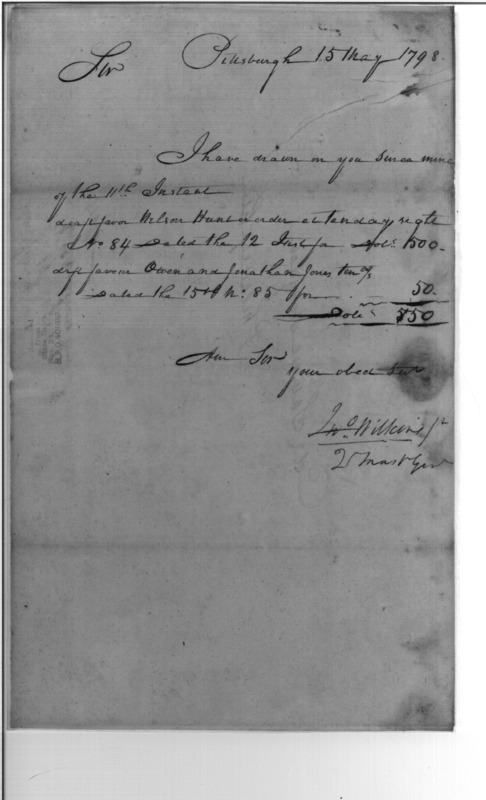 Pittsburgh 15 May 1798.
Sir
I have drawn on you Since mine
of the 11th Instant
in favor Wilson Hunt order at ten day sight
No 84 Dated the 12 Inst for Dols 1500.
favour Owen and Jonathan Jones ten d/s
Dated the 15th No. 85 for 50.
Dolls
I am Sir
your obed Ser
Jno Wilkins Jr
Q Mast Gen